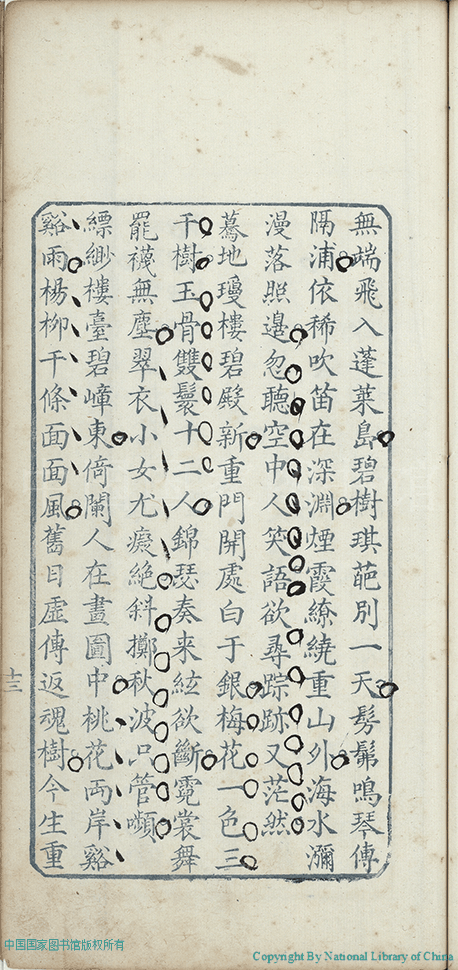 無端飛入蓬萊島碧樹琪葩別一天髣髴鳴琴傳
隔浦依稀吹笛在深淵煙霞繚繞重山外海水瀰
漫落照邉忽聽空中人笑語欲尋踪跡又茫然
驀地瓊樓碧殿新重門開處白于銀梅花一色三
千樹玉骨雙鬟十二人錦瑟奏来絃欲斷霓裳舞
罷襪無塵翠衣小女尤癡絕斜擲秋波只管嚬
縹緲樓臺碧嶂東倚闌人在畫圖中桃花両岸谿
谿雨楊柳千條面面風舊日虛傳返魂樹今生重
十三
中国国家图书馆版权所有
Copyright By National Library of China